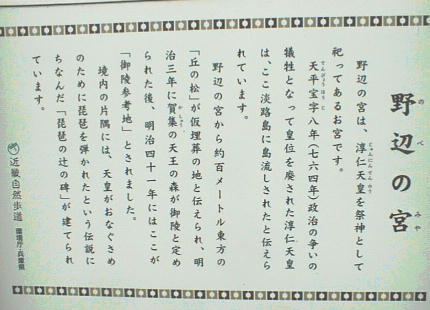 野辺の宮
の べ みや
野辺の宮は、淳仁天皇を祭神として
じゅんにんてんのう
祀ってあるお宮です。
天平宝字八年（七六四年）政治の争いの
てんぴょうほうじ
犠牲となって皇位を廃された淳仁天皇
は、ここ淡路島に島流しされたと伝えら
れています。
野辺の宮から約百メートル東方の
「丘の松」が仮埋葬の地と伝えられ、明
治三年に賀集の天王の森が御陵と定め
かしゅう
られた後、明治四十一年にはここが
「御陵参考地」とされました。
境内の片隅には、天皇がおなぐさめ
のために琵琶を弾かれたという伝説に
ちなんだ「琵琶の辻の碑」が建てられ
ています。
近畿自然歩道
環境庁・兵庫県